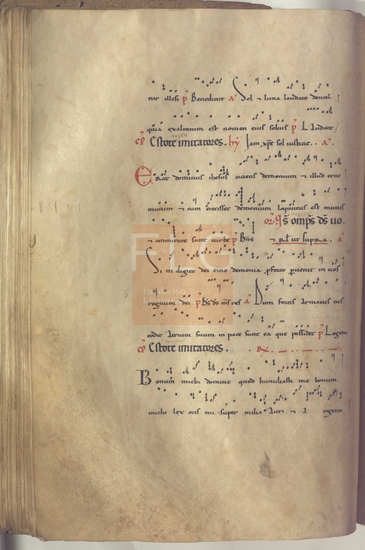 tur illesi p̄ Benedicite a Sol ⁊ luna laudate deum
quia exaltatum est nomen eius solius p̄ Laudate
cp̄ Estote imitatores. hȳ Iam xp̄e sol iustitie. a
Erat dominus ihesus eiciens demonium ⁊ illud erat
mutum ⁊ cum eiecisset demonium loquutus est mutus
or̄ Q̄s om̄ps ds uo
⁊ ammirate sunt turbe p̄ ⁊ rl ut supra a
Si in digito dei eicio demonia profecto peruenit in uos
regnum dei p̄ a Dum fortis armatus cus
todit atrium suum in pace sunt ea que possidet p̄ Legem
cp̄ Estote imitatores. R
Bonum michi domine quod humiliasti me bonum
michi lex oris tui super milia auri ⁊ a rgenti
FLG